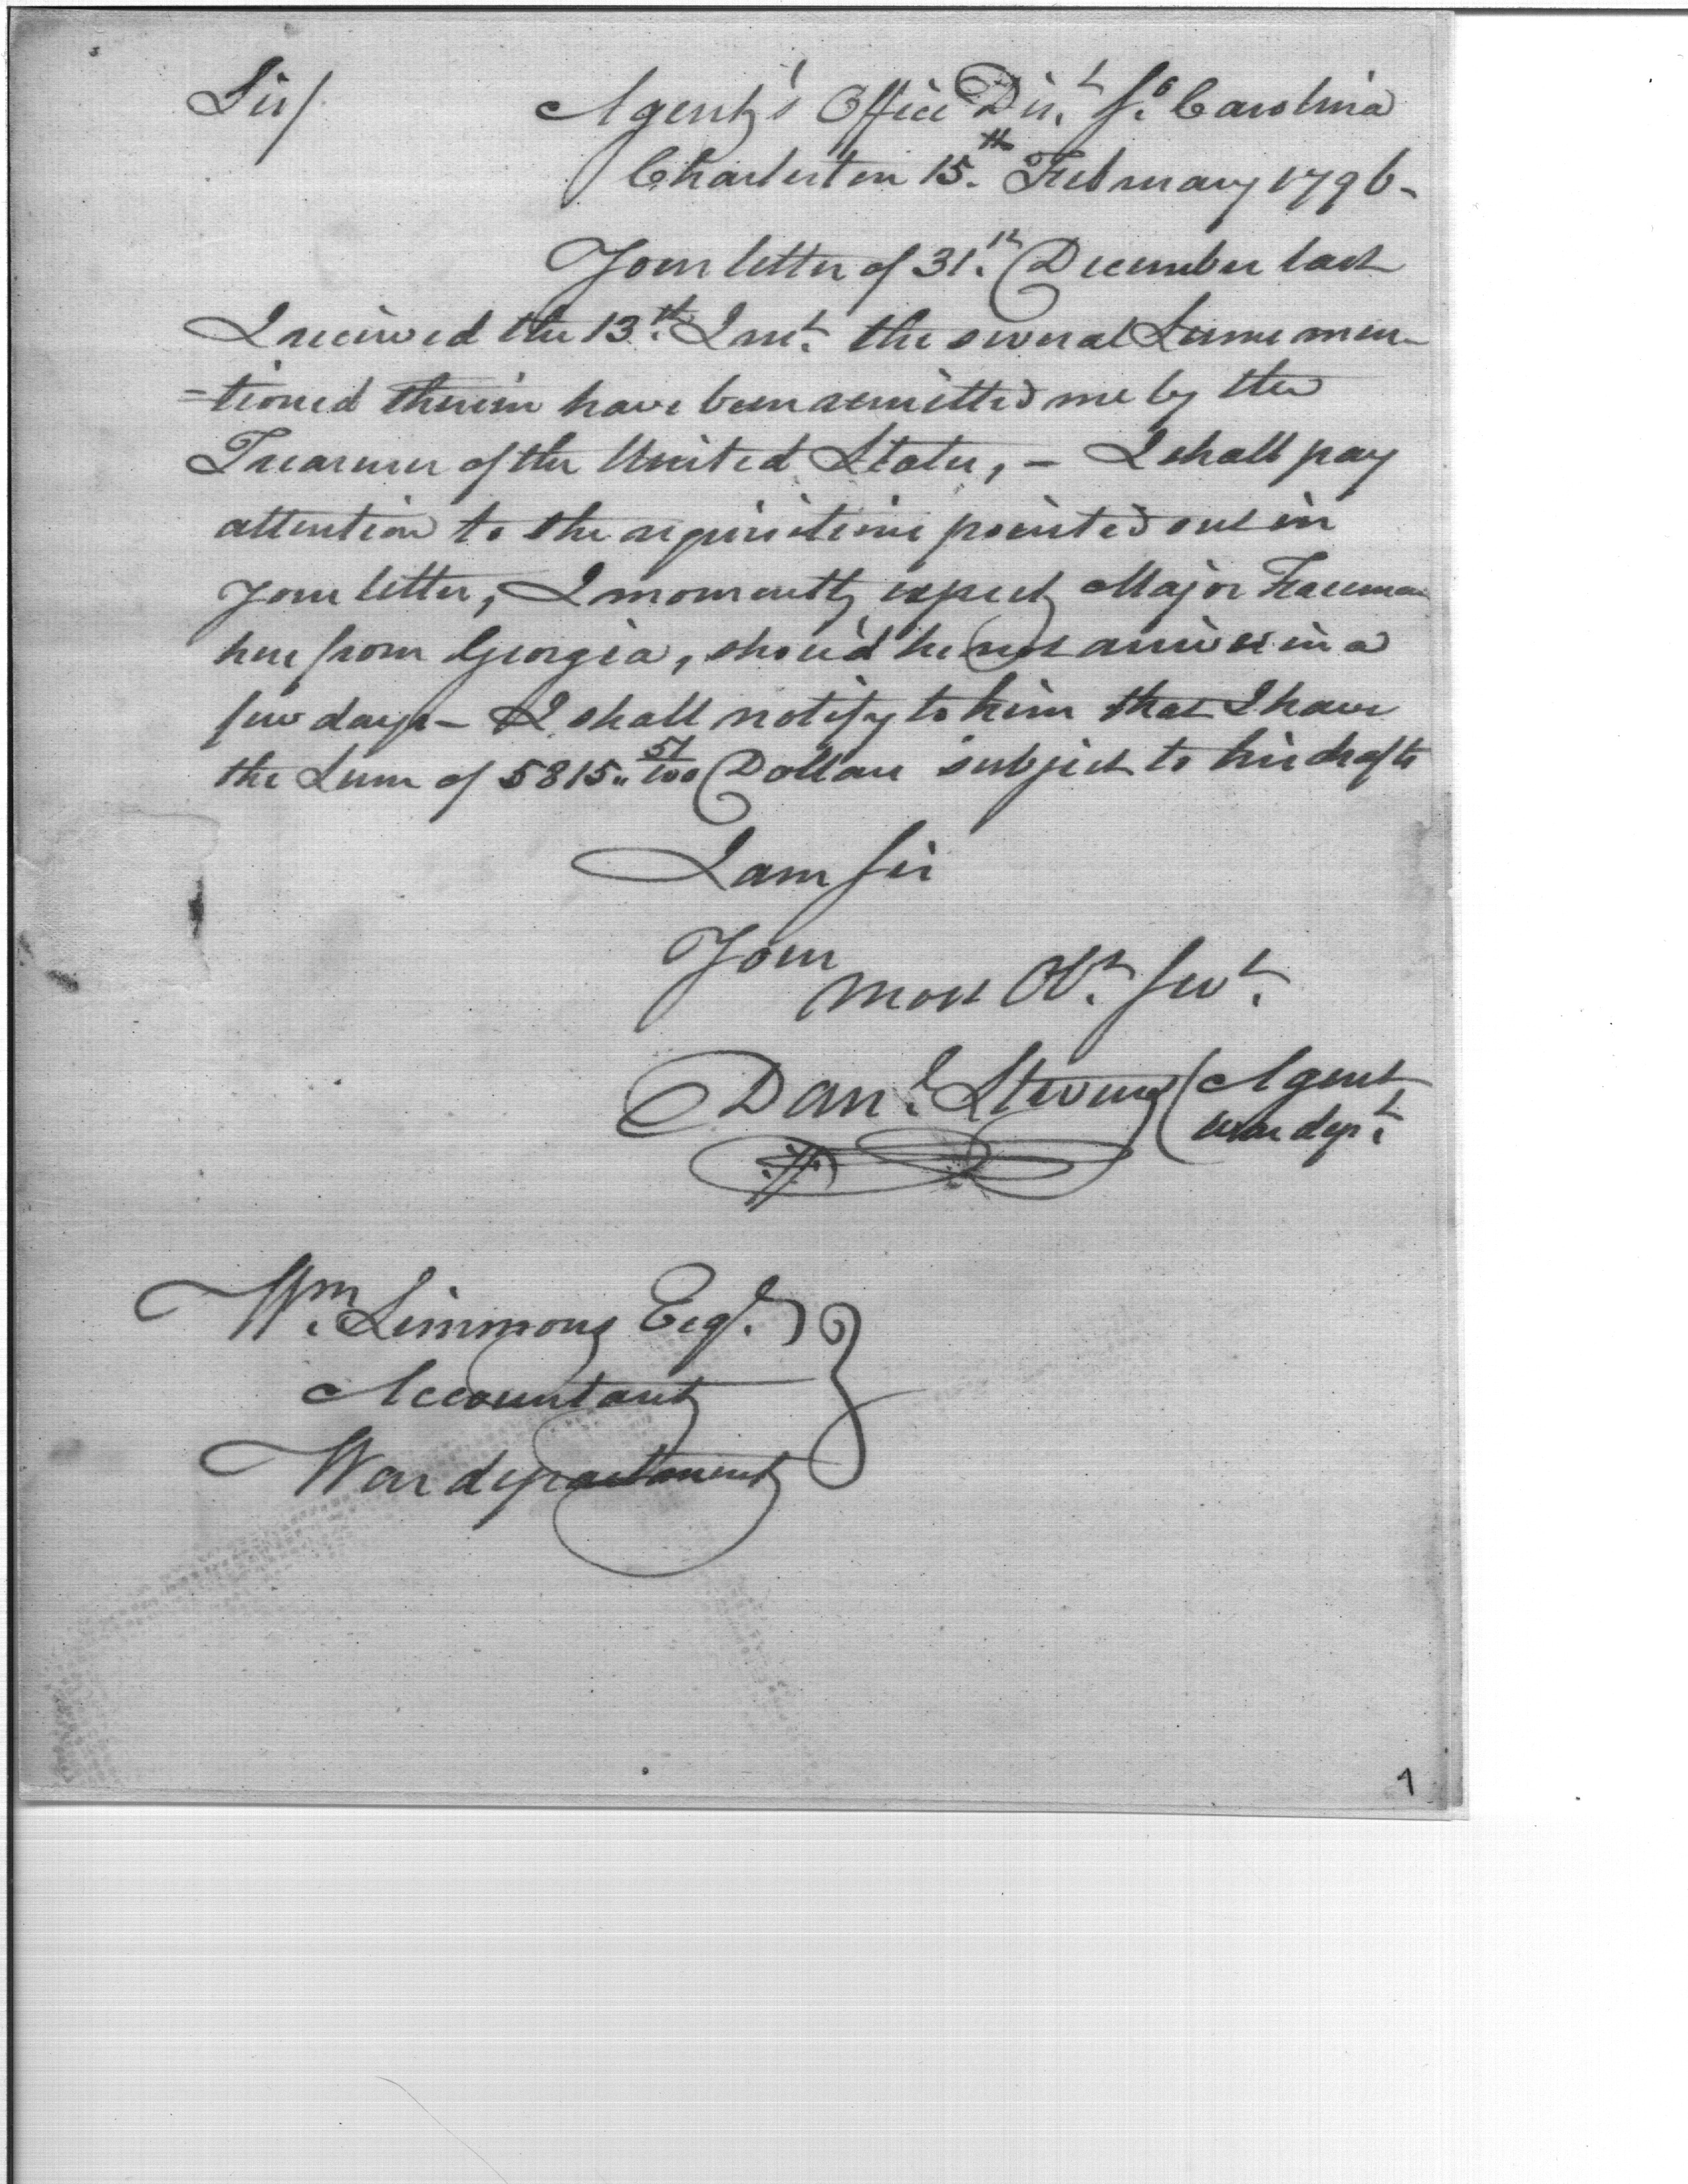 Sir/
Agent's Office Dis.t So. Carolina
Charleston 15.th February 1796-
Your letter of 31.st December last
I received the 13.th Inst. the several Sums men-
=tioned therein have been remitted me by the
Treasurer of the United States, - I shall pay
attention to the requisitions pointed out in
your letter, I momently expect Major Freeman
here from Georgia, shou'd he not arrive in a
few days - I shall notify to him that I have
the Sum of 5815.. 51/100 Dollars subject to his drafts
I am Sir
Your
most Ob.t Serv.t
Dan.l Stevens Agent
War dep.t
Wm. Simmons Esq.r
Accountant
War department
1